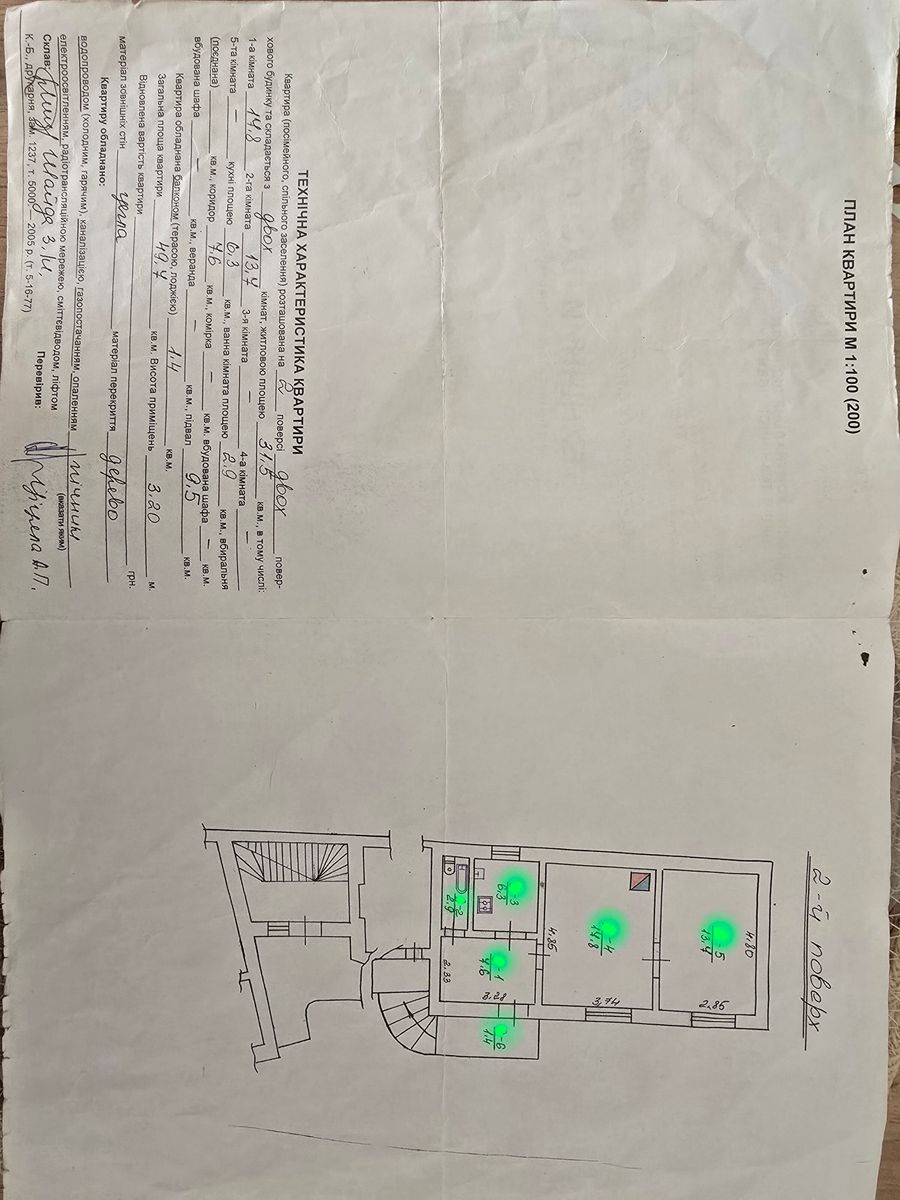 ПЛАН КВАРТИРИ М 1:100 (200)
ТЕХНІЧНА ХАРАКТЕРИСТИКА КВАРТИРИ
Квартира (посімейного, спільного заселення) розташована на 2 поверсі двох повер-
хового будинку та складається з двох кімнат, житловою площею 31,5 кв.м., в тому числі:
1-а кімната 17,8 2-га кімната 13,7 3-я кімната — 4-а кімната —
5-та кімната — кухні площею 6,3 кв.м., ванна кімната площею 2.9 кв.м., вбиральня
(поєднана) кв.м., коридор 7.6 кв.м., комірка — кв.м. вбудована шафа — кв.м.
вбудована шафа — кв.м., веранда — кв.м., підвал 9,5 кв.м.
Квартира обладнана балконом (терасою, лоджією) 1.4 кв.м.
Загальна площа квартири 49,7 кв.м. Висота приміщень 3.20 м.
Відновлена вартість квартири грн.
матеріал зовнішніх стін цегла матеріал перекриття дерево
Квартиру обладнано:
водопроводом (холодним, гарячим), каналізацією, газопостачанням, опаленням пічним
(вказати яким)
електроосвітленням, радіотрансляційною мережею, сміттєвідводом, ліфтом
Склав: Шайда З.М. Перевірив:
К.-Б., друкарня, зам. 1237, т. 5000 — 2005 р. (т. 5-16-77)
2-й поверх
-5
13.7
4.80
2.85
-4
17.8
4.85
3,74
-3
6.3
-2
2.9
-1
7.6
2.33
3.28
-6
1.4